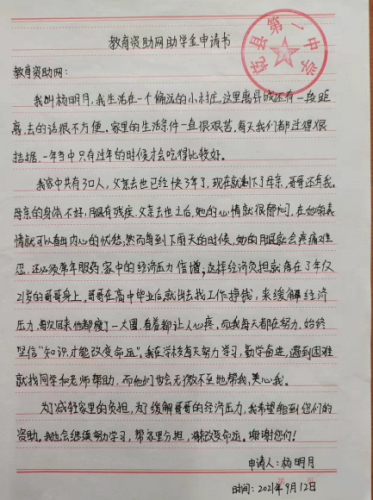 教育资助网助学金申请书
攸县第一中学
教育资助网：
我叫杨明月，我生活在一个偏远的小村庄，这里离县城还有一段距
离，去的话很不方便。家里的生活条件一直很艰苦，每天我们都过得很
拮据，一年当中只有过年的时候才会吃得比较好。
我家中共有3口人，父亲去世已经快3年了，现在就剩下了母亲，哥哥还有我。
母亲的身体不好，腿有残疾，父亲去世之后，她的心情就很郁闷，在她的表
情就可以看出内心的忧愁，然而每到下雨天的时候，她的腿就会疼痛难
忍，还必须常年服药，家中的经济压力倍增，这样经济负担就落在了年仅
21岁的哥哥身上，哥哥在高中毕业后就出去找工作挣钱，来缓解经济
压力，每次回来他都瘦了一大圈，看着都让人心疼。而我每天都在努力，始终
坚信“知识才能改变命运”。我在学校每天努力学习，勤学奋进，遇到困难
就找同学和老师帮助，而他们也会无微不至地帮我，关心我。
为了减轻家里的负担，为了缓解哥哥的经济压力，我希望能得到您们的
资助。我也会继续努力学习，帮家里分担，改变命运。谢谢您们！
申请人：杨明月
时间：2021年9月12日